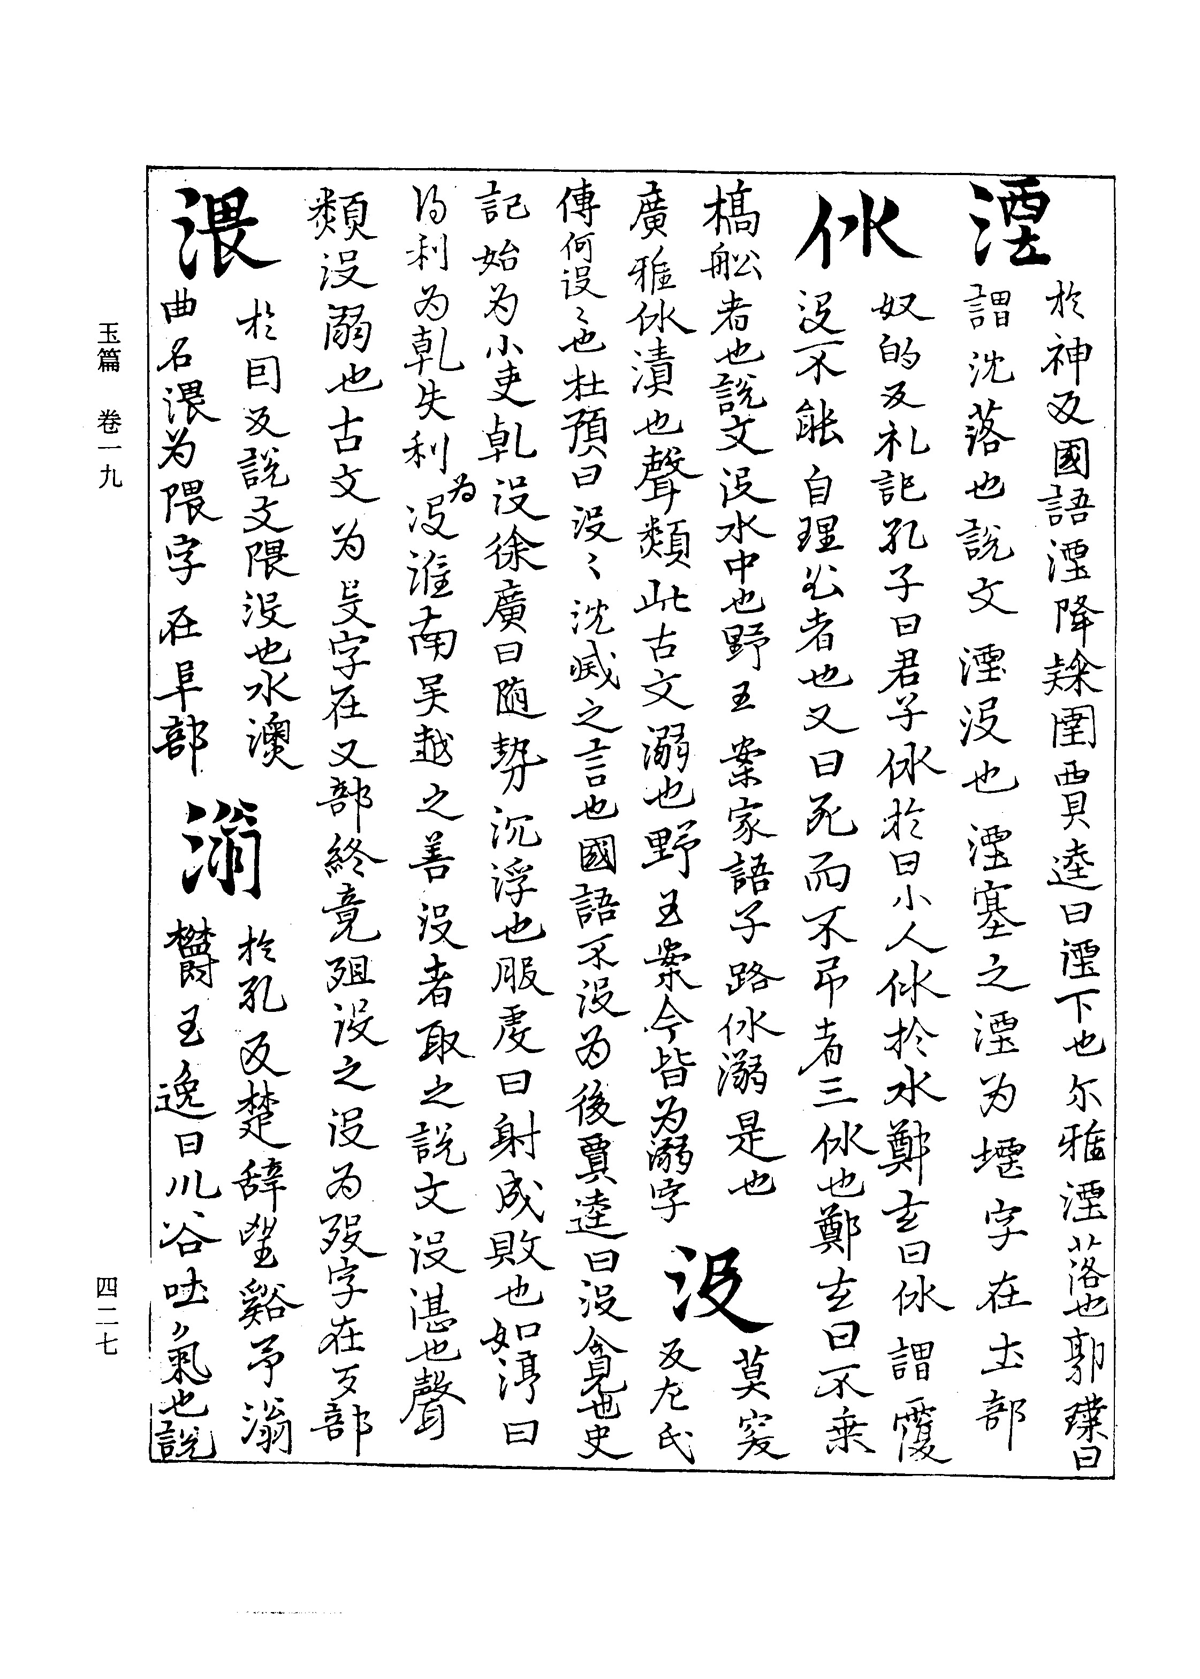 湮
於神反國語湮降𨽻圉賈逵曰湮下也尓雅湮落也郭璞曰
謂沈落也說文湮没也湮塞之湮为堙字在土部
㲻
奴的反礼記孔子曰君子㲻於曰小人㲻於水鄭玄曰㲻謂覆
没不能自理出者也又曰死而不弔者三㲻也鄭玄曰不乗
橋舩者也說文没水中也野王案家語子路㲻溺是也
廣雅㲻漬也聲類此古文溺也野王案今皆为溺字
没
莫突
反左氏
傳何没〻也杜預曰没〻沈滅之言也國語不没为後賈逵曰没貪也史
記始为小吏乹没徐廣曰随势沉浮也服虔曰射成敗也如淳曰
得利为乹失利为没淮南吴越之善没者取之說文没湛也聲
類没溺也古文为𠬛字在又部終竟殂没之没为歿字在歹部
渨
於回反說文隈没也水澳
曲名渨为隈字在阜部
滃
於孔反楚辞望谿予滃
欝王逸曰川谷吐氣也說
玉篇 卷一九
四二七